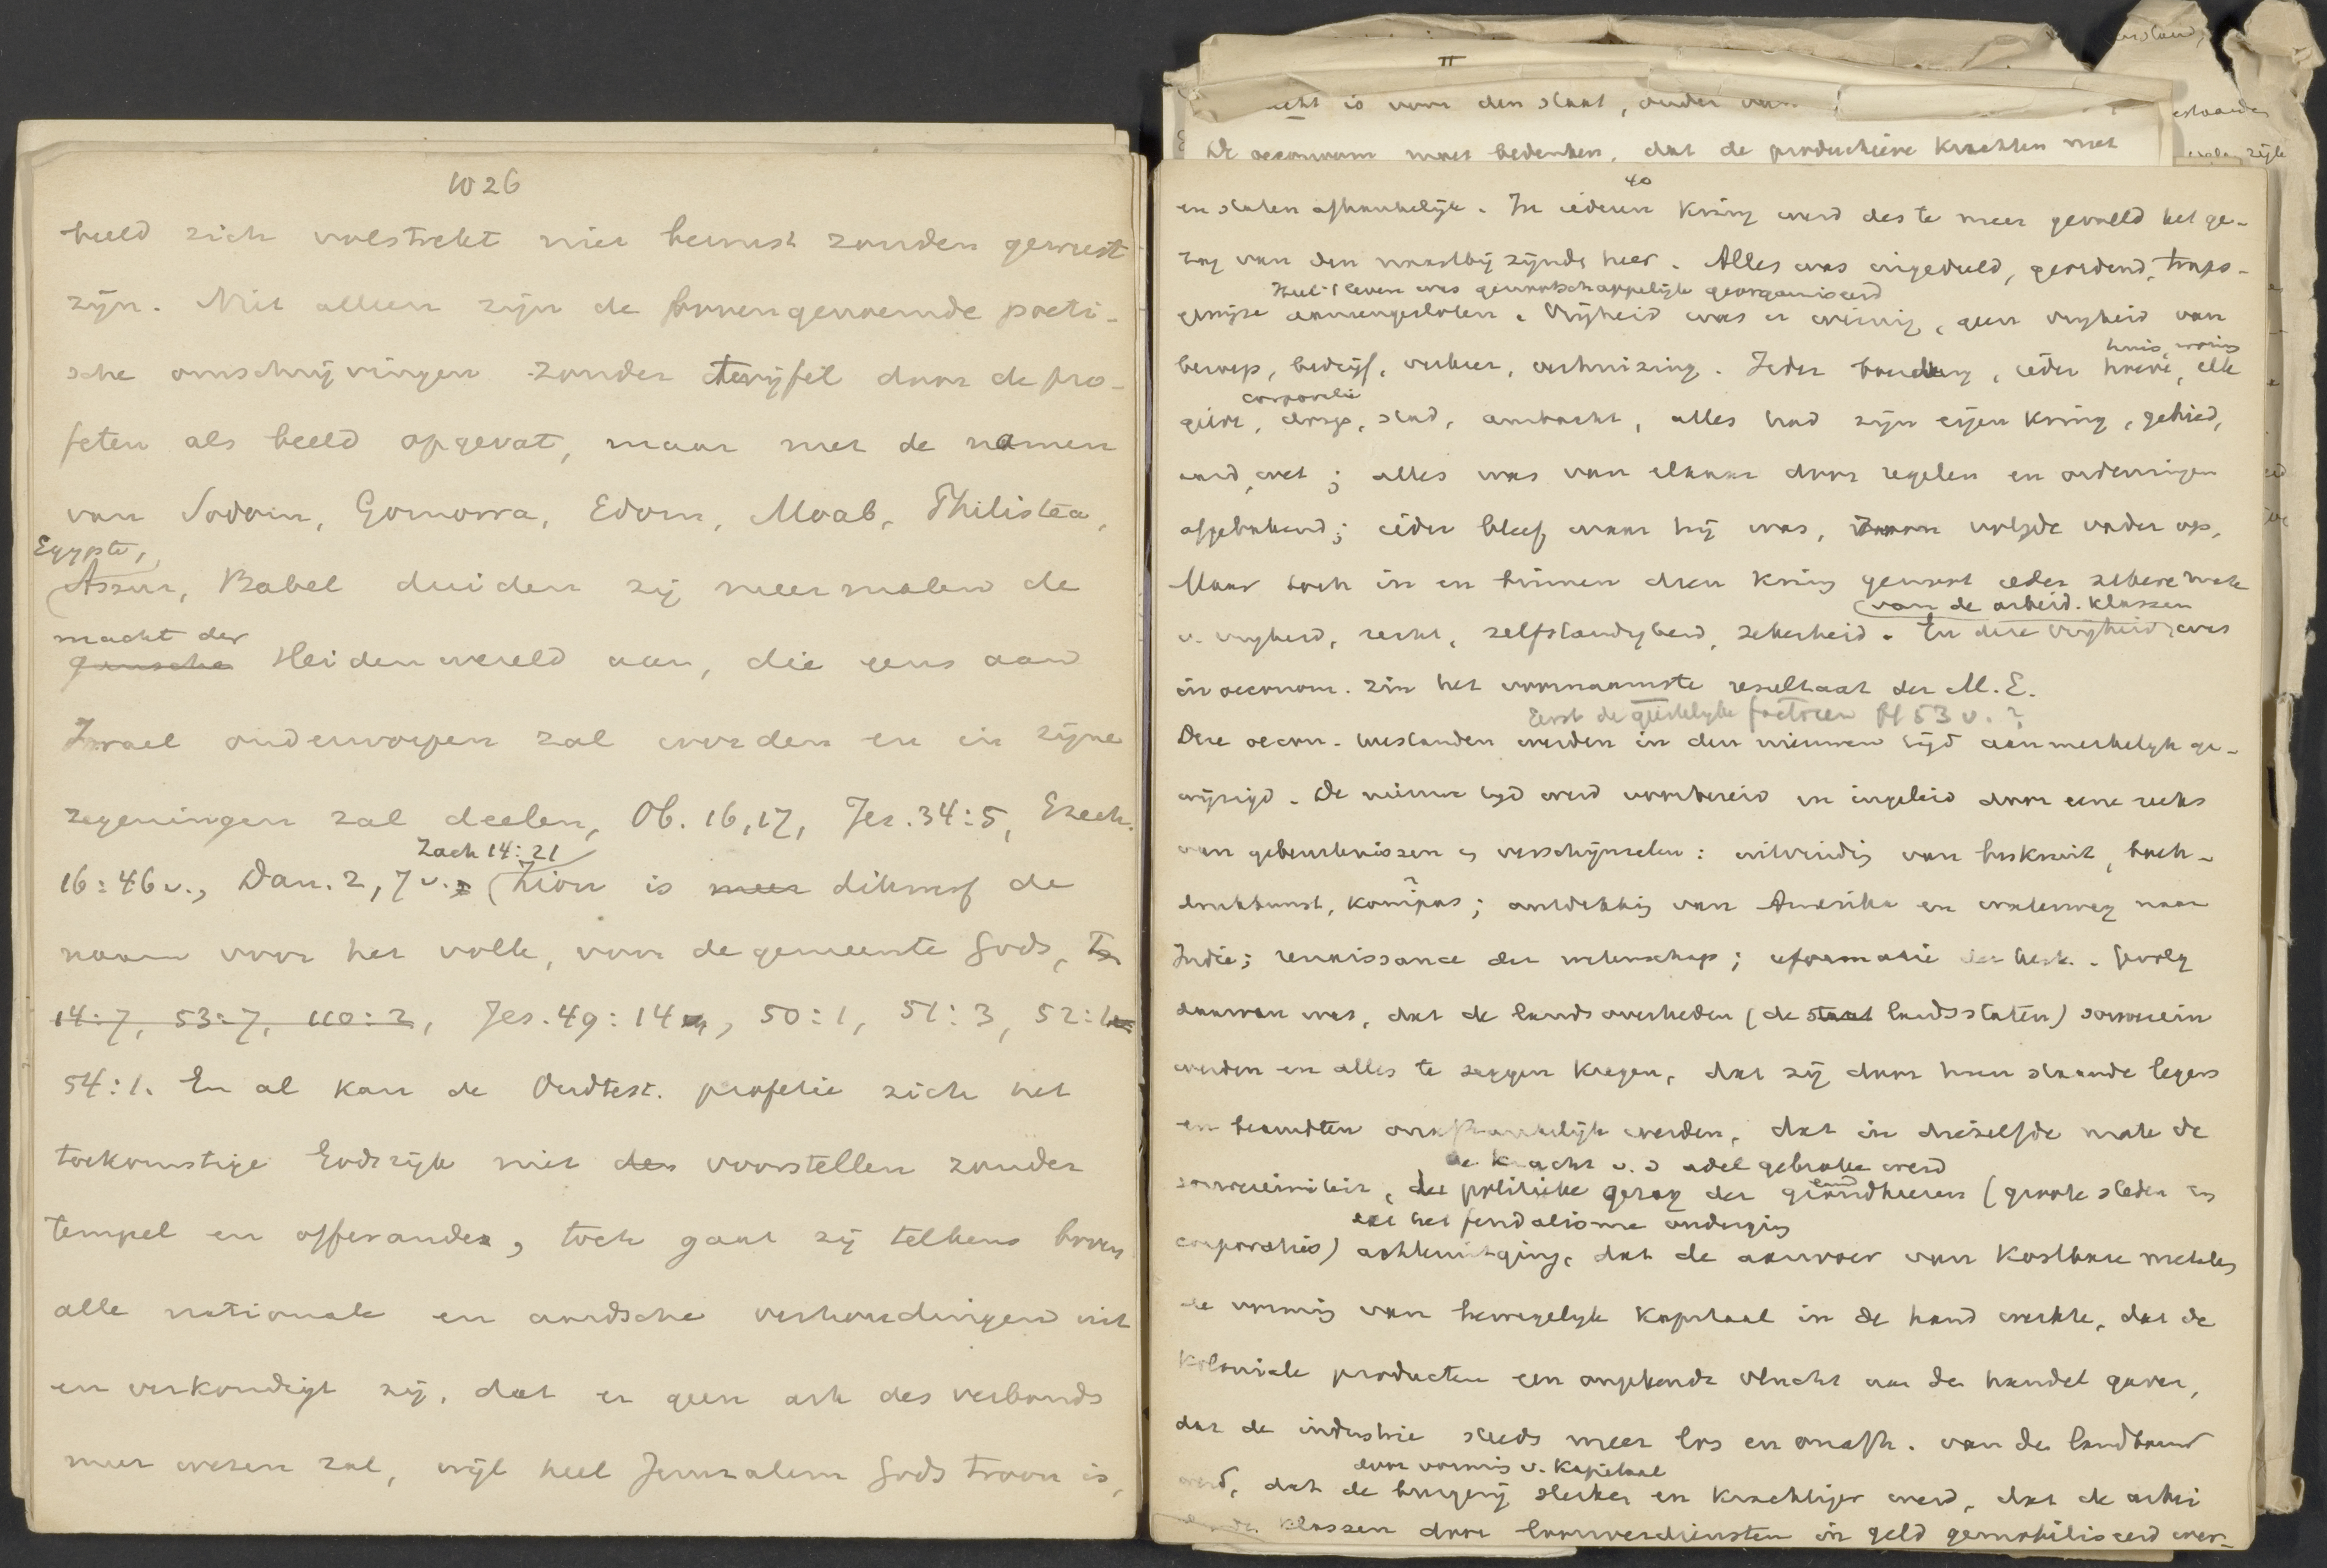 1026
beeld zich volstrekt niet bewust zouden geweest
zijn. Niet alleen zijn de bovengenoemde poeti-
sche omschrijvingen zonder twijfel door de pro-
feten als beeld opgevat, maar met de namen
van Sodom, Gomorra, Edom, Moab, Philistea,
Egypte,
Assur, Babel duiden zij meermalen de
macht der
gansche Heidenwereld aan, die eens aan
Israel onderworpen zal worden en in zijne
zegeningen zal deelen, Ob. 16, 17, Jes. 34:5, Ezech.
Zach 14:21
16:46 v., Dan. 2, 7 v. Zion is meer dikwerf de
naam voor het volk, voor de gemeente Gods,
14:7, 53:7, 110:2, Jes. 49:14, 50:1, 51:3, 52:1
54:1. En al kan de Oudtest. profetie zich het
toekomstige Godsrijk niet voorstellen zonder
tempel en offerande, toch gaat zij telkens boven
alle nationale en aardsche verhoudingen uit
en verkondigt zij, dat er geen ark des verbonds
meer wezen zal, wijl heel Jeruzalem Gods troon is,
II
is voor den staat, onder
De oeconoom moet bedenken, dat de productieve krachten met
40
en staten afhankelijk. In iederen kring werd des te meer gevoeld het ge-
zag van den naastbij zijnde heer. Alles was ingedeeld, geordend, traps-
Heel 't leven was genootschappelijk georganiseerd
gewijze aaneengesloten. Vrijheid was er weinig, geen vrijheid van
huis, woning
beroep, bedrijf, verkeer, verhuizing. Ieder boerderij, ieder hoeve, elk
corporatie
gilde, dorp, stad, ambacht, alles had zijn eigen kring, gebied,
aard, wet; alles was van elkaar door regelen en ordeningen
afgebakend; ieder bleef waar hij was, zoon volgde vader op.
Maar toch in en binnen dien kring genoot ieder zekere mate
van de arbeid. klassen
v. vrijheid, recht, zelfstandigheid, zekerheid. En deze vrijheid was
in oeconom. zin het voornaamste resultaat der M.E.
Eerst de geestelijke factoren bl 53 v. ?
Deze oecon. toestanden werden in den nieuwen tijd aanmerkelijk ge-
wijzigd. De nieuwe tijd werd voorbereid en ingeleid door eene reeks
van gebeurtenissen en verschijnselen: uitvinding van buskruit, boek-
drukkunst, kompas; ontdekking van Amerika en waterweg naar
Indie; renaissance der wetenschap; reformatie der kerk. Gevolg
daarvan was, dat de landsoverheden (de staat landsstaten) souverein
werden en alles te zeggen kregen, dat zij door hun staande legers
en beambten onafhankelijk werden, dat in diezelfde mate de
de kracht v. d adel gebroken werd
souvereiniteit, de politieke gezag der grondheeren (groote steden en
en het feudalisme onderging
corporaties) achteruitging, dat de aanvoer van kostbare metalen
de vorming van bewegelijk kapitaal in de hand werkte, dat de
koloniale producten een ongekende vlucht aan de handel gaven,
dat de industrie steeds meer los en onafh. van den landbouw
door vorming v. kapitaal
werd, dat de burgerij sterker en krachtiger werd, dat de arbei
klassen door loonverdiensten in geld gemobiliseerd wer-